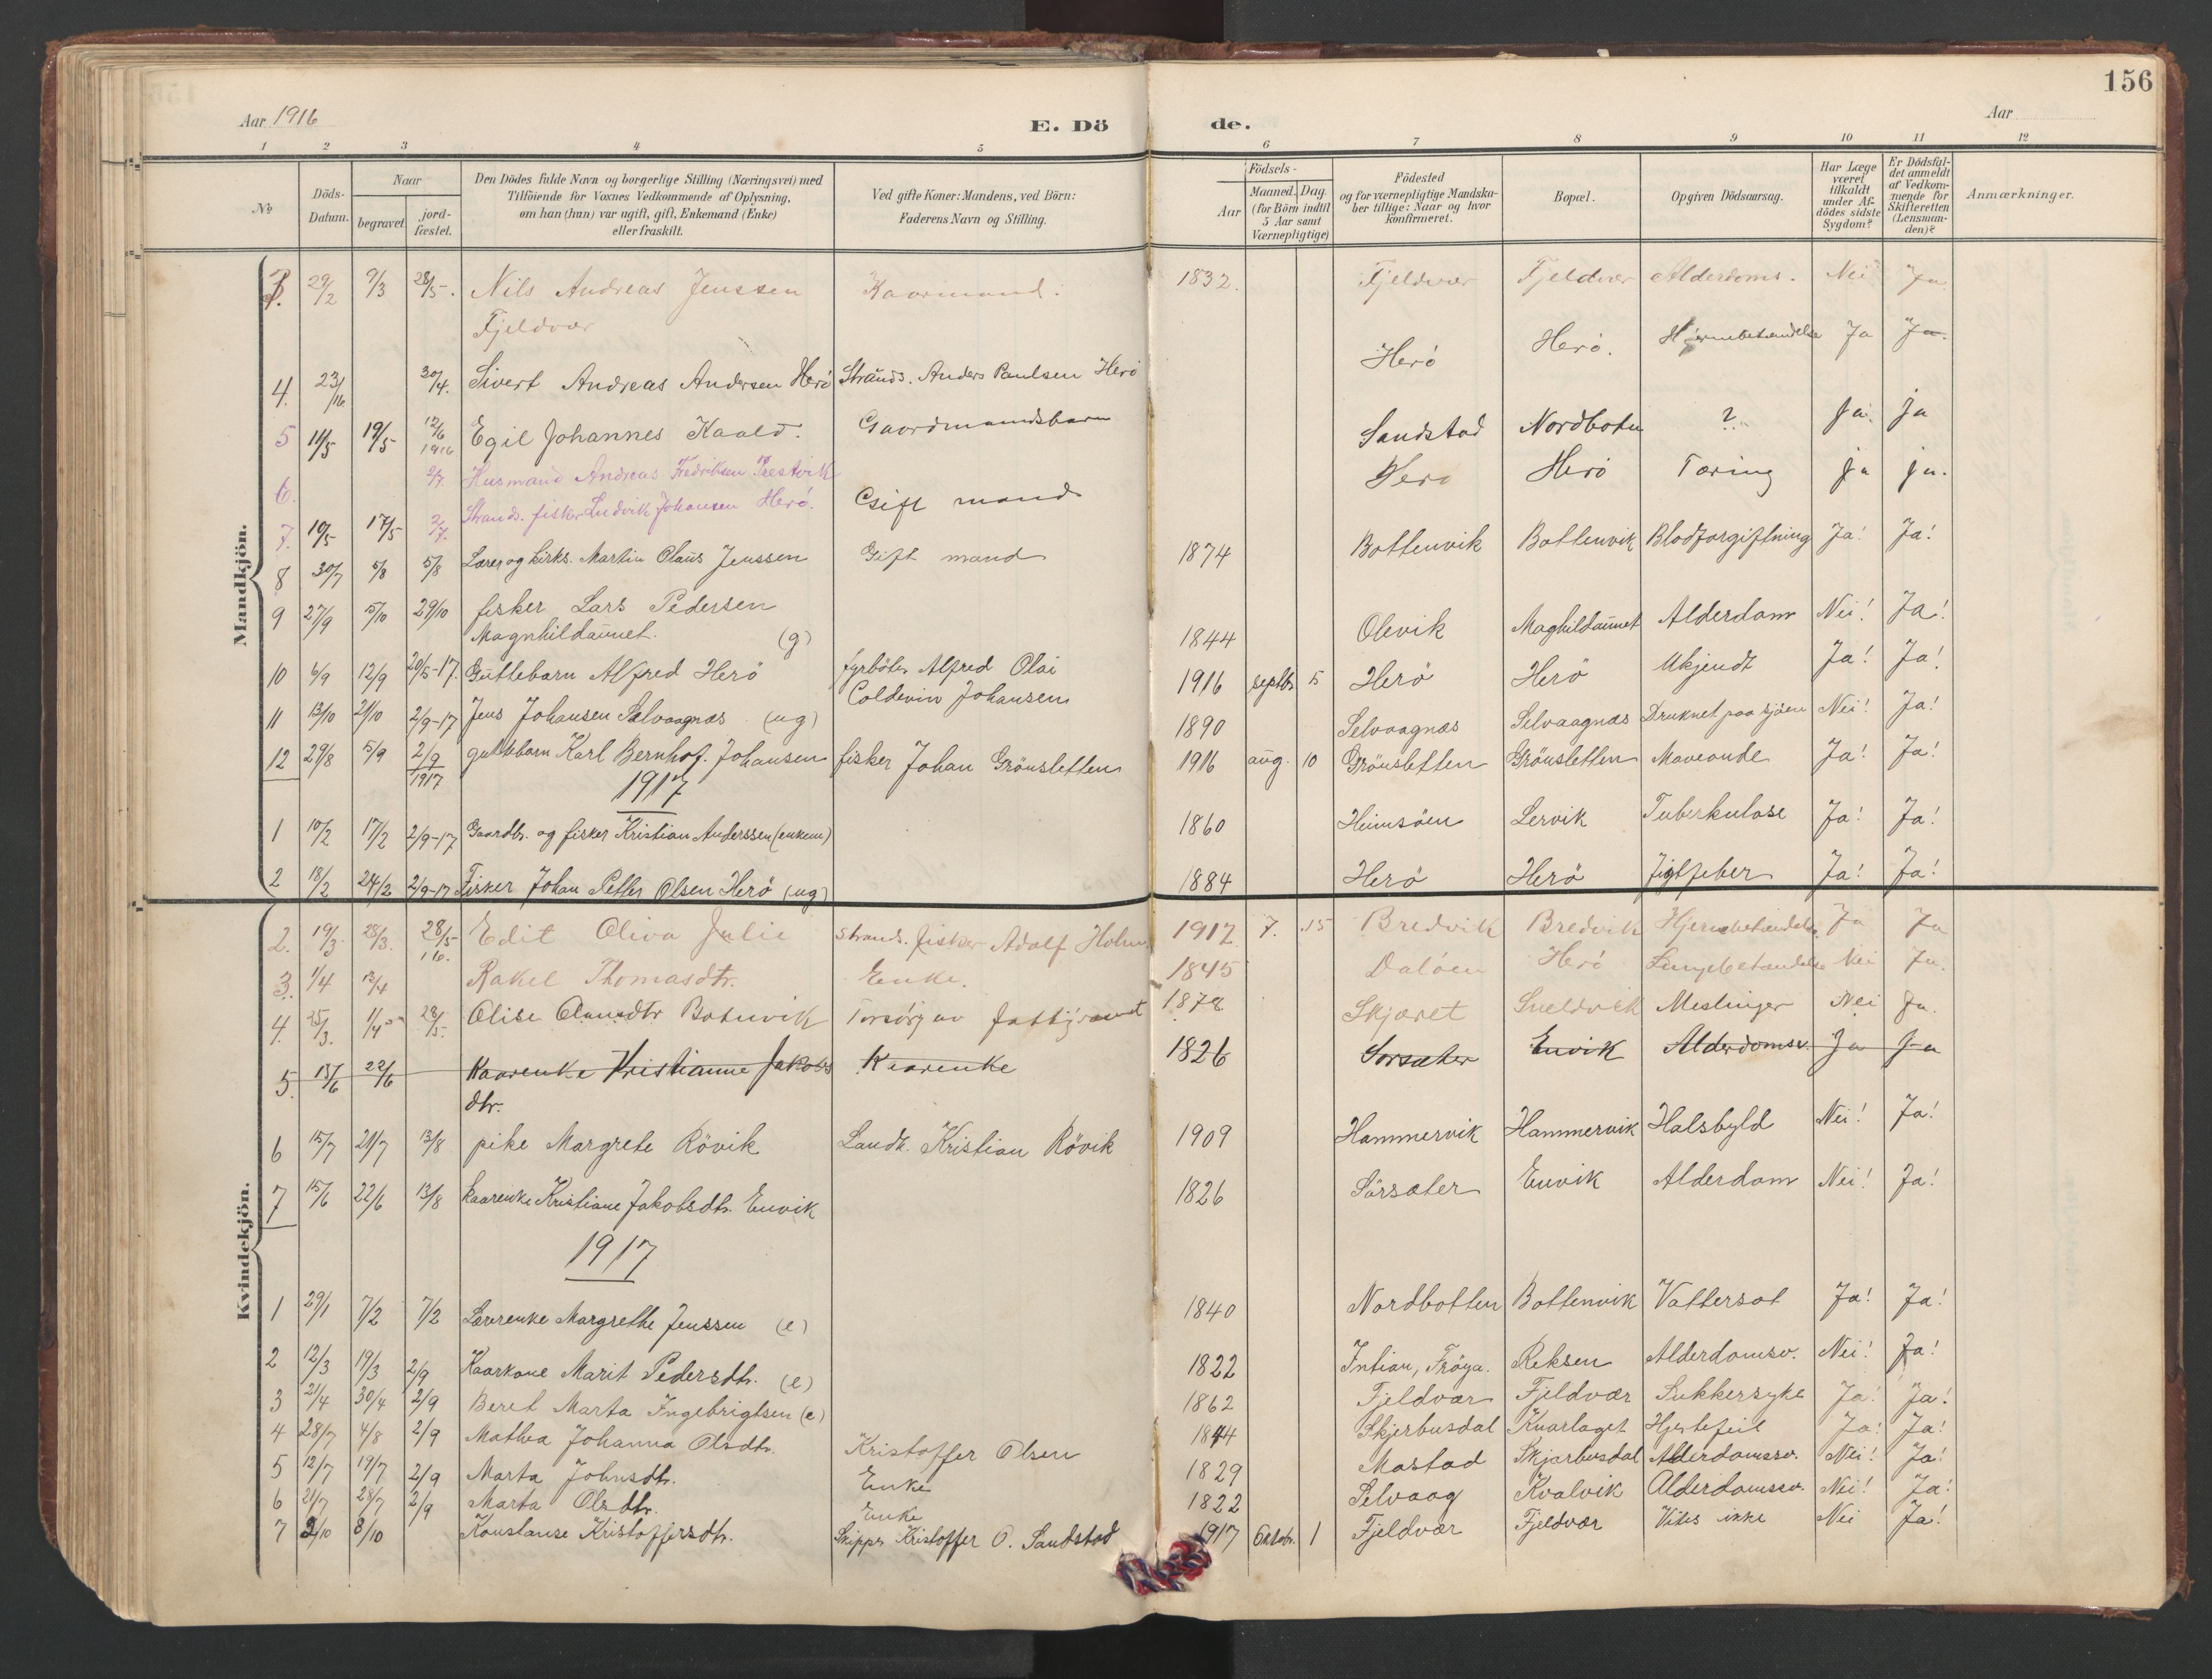 156
Aar 1916
E. Dö
de.
Aar
1 2 3 4 5 6 7 8 9 10 11 12
No
Döds-Datum.
Naar
begravet
jord-fæstet.
Den Dödes fulde Navn og borgerlige Stilling (Næringsvei) med
Tilföiende for Voxnes Vedkommende af Oplysning,
om han (hun) var ugift, gift, Enkemand (Enke)
eller fraskilt.
Ved gifte Koner: Mandens, ved Börn:
Faderens Navn og Stilling.
Födsels-
Aar
Maaned. Dag.
(for Börn indtil
5 Aar samt
Værnepligtige)
Födested
og for værnepligtige Mandska-
ber tillige: Naar og hvor
konfirmeret.
Bopæl.
Opgiven Dödsaarsag.
Har Læge
været
tilkaldt
under Af-
dödes sidste
Sygdom?
Er Dödsfal-
det anmeldt
af Vedkom-
mende for
Skifteretten
(Lensman-
den)?
Anmærkninger.
Mandkjön.
3. 29/2 9/3 28/5. Nils Andreas Jenssen Kaarmand. 1832. Fjeldvær Fjeldvær Alderdoms. Nei Ja
Fjeldvær
4. 23/16 30/4. Sivert Andreas Andersen Herö Strands. Anders Paulsen Herö Herö Herö. Hjernebetændelse Ja Ja
5 11/5 19/5 12/6 1916 Egil Johannes Kaald. Gaardmandsbarn Sandstad Nordbotn ? Ja Ja
6. 2/7. Husmand Andreas Fredriksen Prestvik Herö Herö Tæring ja ja.
7. 10/5 17/5 2/7. Strands. fisker Ludvik Johansen Herö. Gift mand
8 30/7 5/8 5/8 Lærer og kirks. Martin Olaus Jenssen Gift mand 1874 Bottenvik Bottenvik Blodforgiftning Ja! Ja!
9 27/9 5/10 29/10 fisker Lars Pedersen
Magnhildaunet. (g) 1844 Olevik Maghildaunet Alderdom Nei! Ja!
10 6/9 12/9 20/5-17. Guttebarn Alfred Herö fyrböter Alfred Olai
Coldevin Johansen 1916 septbr. 5 Herö Herö Ukjendt Ja! Ja!
11 13/10 21/10 2/9-17 Jens Johansen Selvaagnæs (ug) 1890 Selvaagnæs Selvaagnæs Druknet paa sjöen Nei! Ja!
12 29/8 5/9 2/9 1917 guttebarn Karl Bernhof. Johansen fisker Johan Grönsletten 1916 aug. 10 Grönsletten Grönsletten Maveonde Ja! Ja!
1917
1 10/2 17/2 2/9-17 Gaardbr. og fisker Kristian Anderssen (enkem) 1860 Heimsöen Lervik Tuberkulose Ja! Ja!
2 18/2 24/2 2/9-17 Fisker Johan Petter Olsen Herö (ug) 1884 Herö Herö Figtfeber Ja! Ja!
Kvindekjön.
2. 19/3 28/3. 28/5 16. Edit Oliva Julie Strands. fisker Adolf Holm. 1912 7. 15 Bredvik Bredvik Hjernebetændelse Ja Ja
3. 1/4 13/4 Rakel Thomasdtr. Enke. 1845 Dalöen Herö Lungebetændelse Nei Ja.
4. 25/3. 1/4 28/5. Olise Olausdtr Botnvik Forsörg av fattigvæsnet 1878 Skjæret Sneldvik Meslinger Nei Ja.
5. 15/6 22/6 Kaarenke Kristianne Jakobs Kaarenke 1826 Sorsæter Envik Alderdomsv. Ja Ja
dtr.
6 15/7 21/7 13/8 pike Margrete Rövik Landh. Kristian Rövik 1909 Hammervik Hammervik Halsbyld Nei! Ja!
7 15/6 22/6 13/8 kaarenke Kristiane Jakobsdtr. Envik 1826 Sörsæter Envik Alderdom Nei! Ja!
1917
1 29/1 7/2 7/2 Laurenke Margrethe Jenssen (e) 1840 Nordbotten Bottenvik Vattersot Ja! Ja!
2 12/3 19/3 2/9 Kaarkone Marit Pedersdtr. (e) 1822 Intian, Fröya. Reksen Alderdomsv. Nei! Ja!
3 21/4 30/4 2/9 Beret Marta Ingebrigtsen (e) 1862 Fjeldvær Fjeldvær Sukkersyke Ja! Ja!
4 28/7 4/8 2/9 Mathea Johanna Olsdtr. Kristoffer Olsen 1844 Skjerbusdal Kvarlaget Hjertefeil Ja! Ja!
5 12/7 19/7 2/9 Marta Johnsdtr. Enke 1829 Mastad Skjærbusdal Alderdomssv. Nei! Ja!
6 21/7 28/7 2/9 Marta Olsdtr. Enke 1822 Selvaag Kvalvik Alderdomssv. Nei! Ja!
7 2/10 8/10 Konstanse Kristoffersdtr. Skipper Kristoffer O. Sandstad 1917 Oktobr. 1 Fjeldvær Fjeldvær Vites ikke Nei Ja!